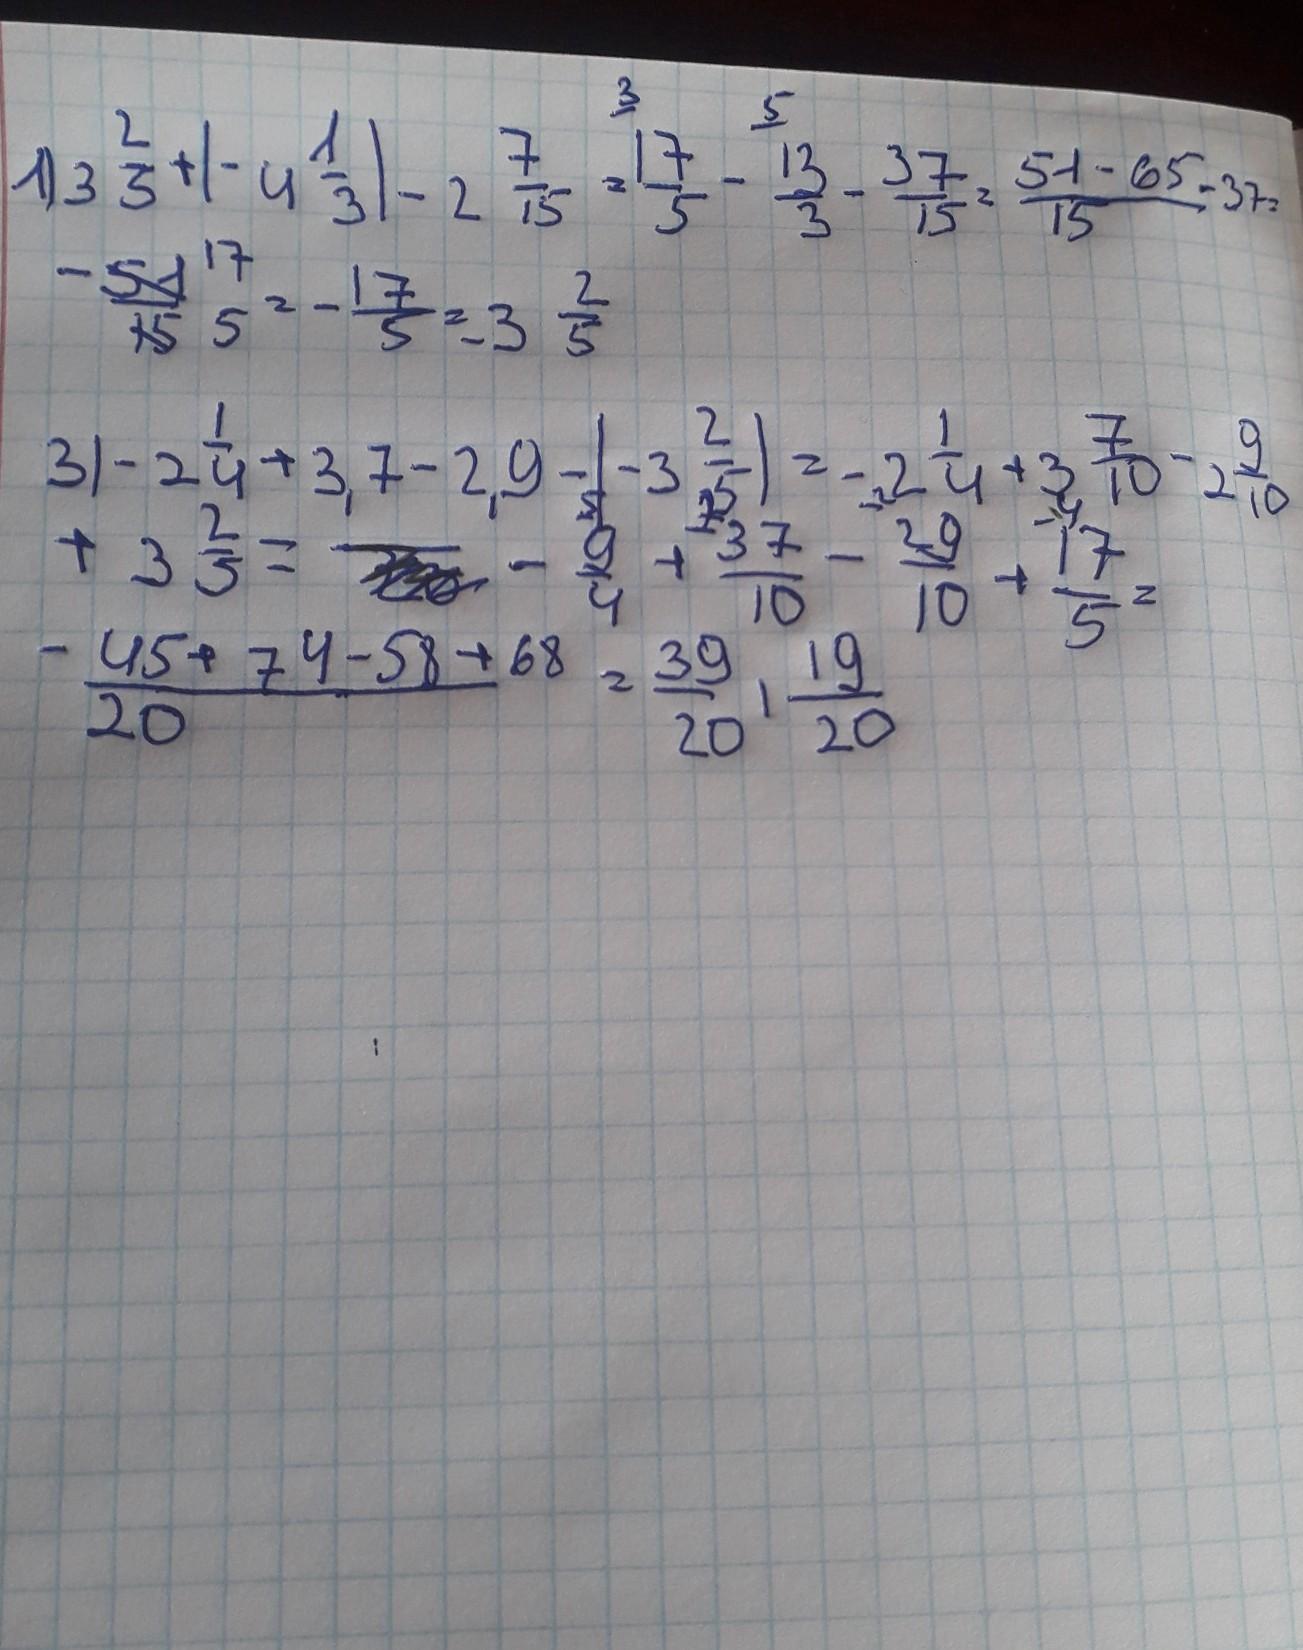 3 5
1) 3 2/5 + |-4 1/3| - 2 7/15 = 17/5 - 13/3 - 37/15 = (51 - 65 - 37)/15 =
- 51/15 17/5 = - 17/5 = -3 2/5
3) -2 1/4 + 3,7 - 2,9 - |-3 2/5| = -2 1/4 + 3 7/10 - 2 9/10
+ 3 2/5 = - 9/4 + 37/10 - 29/10 + 17/5 =
(-45 + 74 - 58 + 68)/20 = 39/20 1 19/20